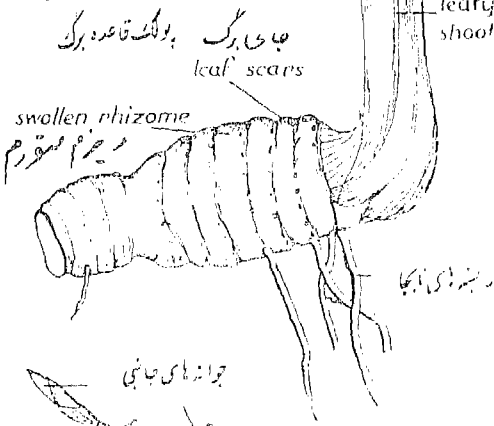 leafy
shoot
جای برگ پولک قاعده برگ
leaf scars
swollen rhizome
ریزم متورم
ریشه های نابجا
جوانه های جانبی